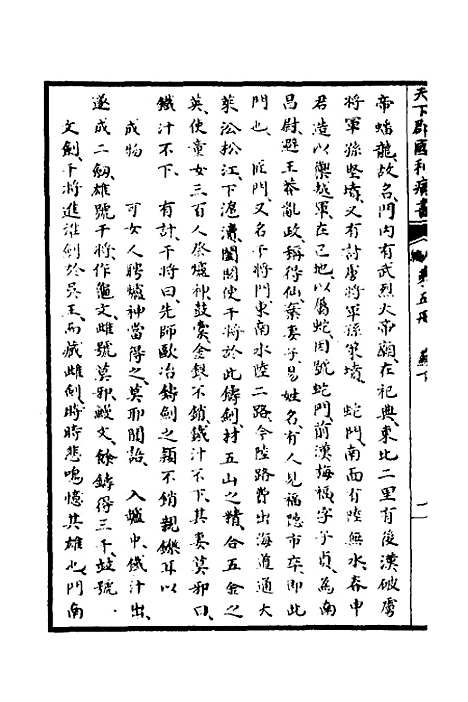 天下郡國利病書
第五冊 蘇下
帝蟠龍、故名、門内有武烈大帝廟、在祀典、東北二里有後漢破虜
將軍孫堅墳、又有討虜將軍孫策墳、 蛇門、南面有陸無水、春申
君造以禦越軍、在巳地、以屬蛇、因號蛇門、前漢梅福、字子貞、爲南
昌尉、避王莽亂政、稱得仙、棄妻子、易姓名、有人見福隱市卒、即此
門也、 匠門、又名干將門、東南水陸二路、今陸路曾出海道通大
萊沿松江、下滬瀆、闔閭使干將於此鑄劍、材五山之精、合五金之
英、使童女三百人祭爐神、鼓橐、金銀不銷、鐵汁不下、其妻莫邪曰、
鐵汁不下、 有計、干將曰、先師歐冶鑄劍之穎不銷、親鑠耳、以
成物 可女人聘爐神、當得之、莫邪聞語、 入爐中、鐵汁出、
遂成二劍、雄號干將、作龜文、雌號莫邪、鰻文、餘鑄得三千、並號
文劍、干將進雄劍於吳王、而藏雌劍、時時悲鳴、憶其雄也、門南